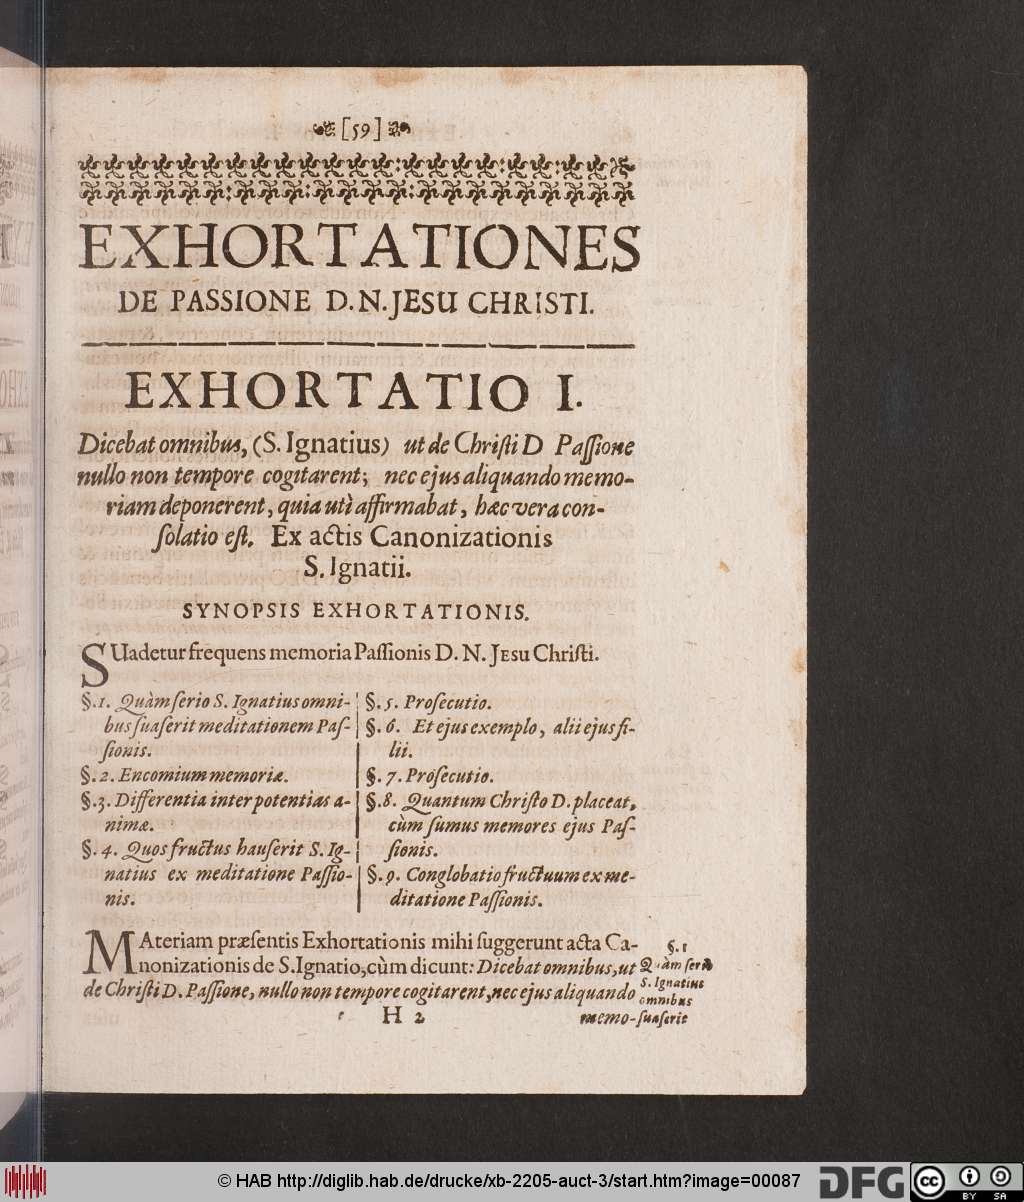 [59]
EXHORTATIONES
DE PASSIONE D.N.JESU CHRISTI.
EXHORTATIO I.
Dicebat omnibus, (S. Ignatius) ut de Christi D Passione
nullo non tempore cogitarent; nec ejus aliquando memo-
riam deponerent, quia utì affirmabat, hæc vera con-
solatio est. Ex actis Canonizationis
S. Ignatii.
SYNOPSIS EXHORTATIONIS.
SUadetur frequens memoria Passionis D. N. JESU Christi.
§.1. Quàm serio S. Ignatius omni-
bus suaserit meditationem Pas-
sionis.
§.2. Encomium memoriæ.
§.3. Differentia inter potentias a-
nimæ.
§.4. Quos fructus hauserit S. Ig-
natius ex meditatione Passio-
nis.
§.5. Prosecutio.
§.6. Et ejus exemplo, alii ejus fi-
lii.
§.7. Prosecutio.
§.8. Quantum Christo D. placeat,
cùm sumus memores ejus Pas-
sionis.
§.9. Conglobatio fructuum ex me-
ditatione Passionis.
MAteriam præsentis Exhortationis mihi suggerunt acta Ca-
nonizationis de S. Ignatio, cùm dicunt: Dicebat omnibus, ut
de Christi D. Passione, nullo non tempore cogitarent, nec ejus aliquando
§.1
Quàm serio
S. Ignatius
omnibus
suaserit
H 2
memo-
© HAB http://diglib.hab.de/drucke/xb-2205-auct-3/start.htm?image=00087
DFG
cc
BY SA